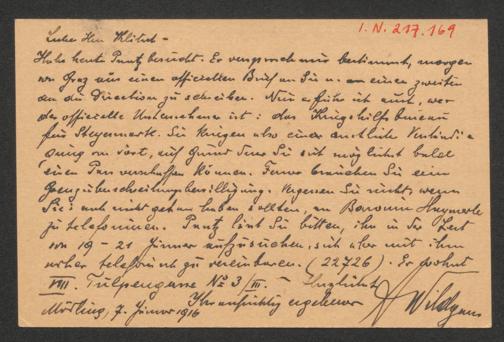 I.N. 217.169
Lieber Herr Klitsch –
Habe heute Pantz besucht. Er versprach mir bestimmt, morgen
von Graz aus einen officiellen Brief an Sie u. an einen zweiten
an die Direction zu schreiben. Nun erfuhr ich auch, wer
der officielle Unternehmer ist: das Kriegshilfsbureau
für Steyermark. Sie kriegen also eine amtliche
von dort, auf Grund deren Sie sich möglichst bald
einen Pass verschaffen können. Ferner brauchen Sie ein
Grenzüberschreitungsbewilligung. Vergessen Sie nicht, wenn
Sie's noch nicht gethan haben sollten, an Baronin Haymerle
zu telefonieren. Pantz lässt Sie bitten, ihn in der Zeit
von 19 – 21 Jänner aufzusuchen, sich aber mit ihm
vorher telefonisch zu vereinbaren. (22726). Er wohnt
VIII. Tulpengasse No 3/III. – Herzlichst
Ihr aufrichtig ergebener
Mödling, 7. Jänner 1916 A Wildgans